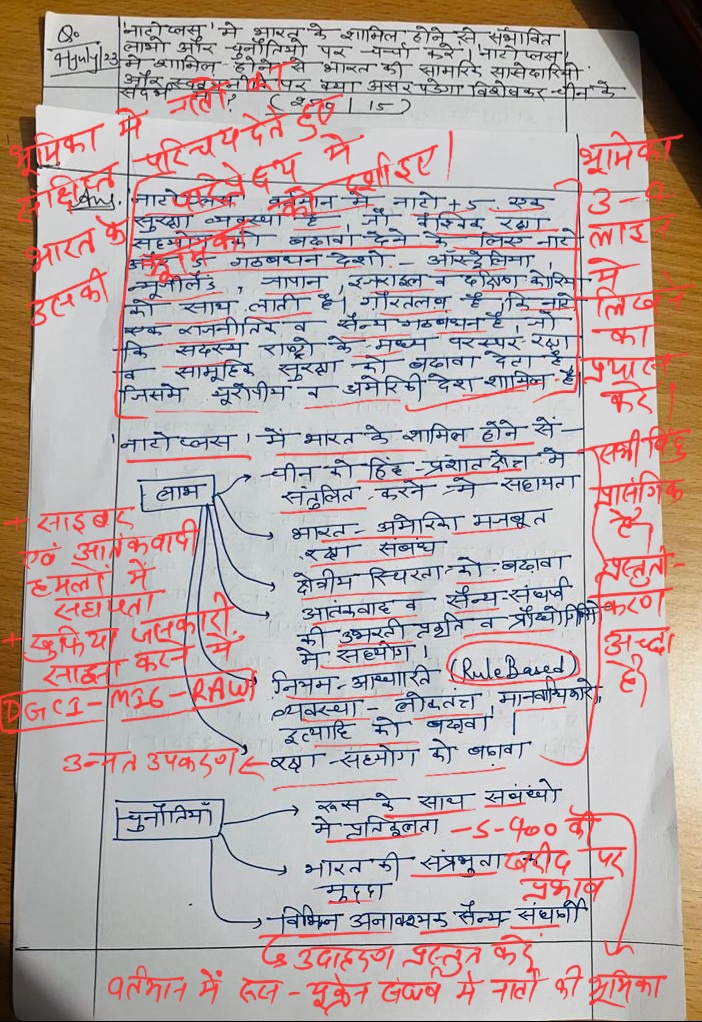 Q.
9 July 23
'नाटो प्लस' में भारत के शामिल होने से संभावित
लाभों और चुनौतियों पर चर्चा करें। 'नाटो प्लस'
में शामिल होने से भारत की सामरिक साझेदारियों
और पर क्या असर पड़ेगा विशेषकर चीन के
संदर्भ में? ( 250 / 15 )
भूमिका में नाटो का
संक्षिप्त परिचय देते हुए
भारत के
उसकी भूमिका को दर्शाइए।
Ans.
'नाटो प्लस' वर्तमान में नाटो + 5 एक
सुरक्षा व्यवस्था है, जो वैश्विक रक्षा
सहयोग को बढ़ावा देने के लिए नाटो
और 5 गठबंधन देशों - ऑस्ट्रेलिया,
न्यूजीलैंड, जापान, इजराइल व दक्षिण कोरिया
को साथ लाती है। गौरतलब है, कि नाटो
एक राजनीतिक व सैन्य गठबंधन है, जो
कि सदस्य राष्ट्रों के मध्य परस्पर रक्षा
व सामूहिक सुरक्षा को बढ़ावा देता है
जिसमें यूरोपीय व अमेरिकी देश शामिल है।
भूमिका
3-4
लाइन
में
लिखने
का
प्रयास
करें।
'नाटो प्लस' में भारत के शामिल होने से -
लाभ
चीन को हिंद-प्रशांत क्षेत्र में
संतुलित करने में सहायता
भारत-अमेरिका मजबूत
रक्षा संबंध
क्षेत्रीय स्थिरता को बढ़ावा
आतंकवाद व सैन्य-संघर्ष
की उभरती प्रकृति व प्रौद्योगिकी
में सहयोग।
नियम-आधारित (Rule Based)
व्यवस्था - लोकतंत्र, मानवाधिकारों,
इत्यादि को बढ़ावा।
रक्षा-सहयोग को बढ़ावा
+ साइबर
एवं आतंकवादी
हमलों में
सहायता
+ खुफिया जानकारी
साझा करने में
DGCI-M16-RAW
उन्नत उपकरण
सभी बिंदु
प्रासंगिक
है,
प्रस्तुती-
करण
अच्छा
है
चुनौतियाँ
रूस के साथ संबंधों
में प्रतिकूलता - S-400 की
खरीद पर
प्रभाव
भारत की संप्रभुता का
मुद्दा
विभिन्न अनावश्यक सैन्य संघर्षों
↳ उदाहरण प्रस्तुत करें
वर्तमान में रूस-यूक्रेन संघर्ष में नाटो की भूमिका